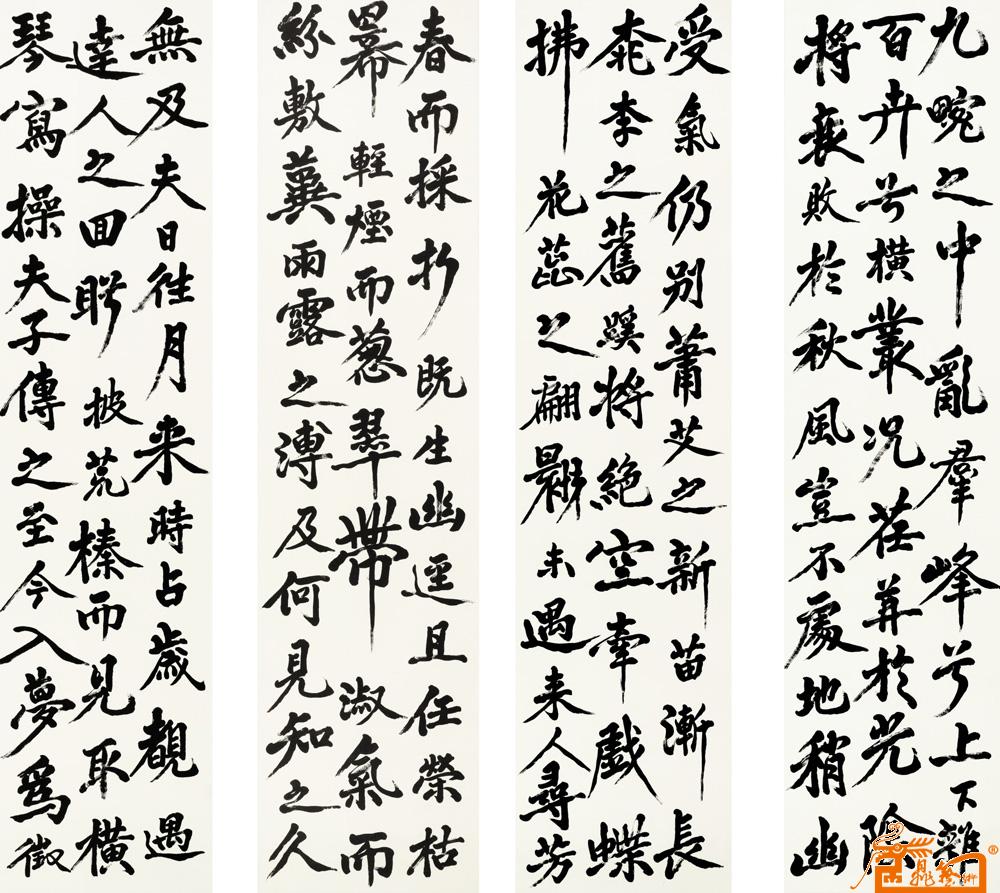 九畹之中亂羣峰兮上下雜
百卉兮橫叢况荏苒於光陰
將衰敗於秋風豈不處地稍幽
受氣仍别蕭艾之新苗漸長
桃李之舊蹊將絕空牽戲蝶
拂花蕊之翩翾未遇来人尋芳
春而採折既生幽逕且任榮枯
羃輕煙而蔥翠帶淑氣而
紛敷冀雨露之溥及何見知之久
無及夫日往月来時占歲覩遇
達人之回眄披荒榛而見取橫
琴寫操夫子傳之至今入夢為徵